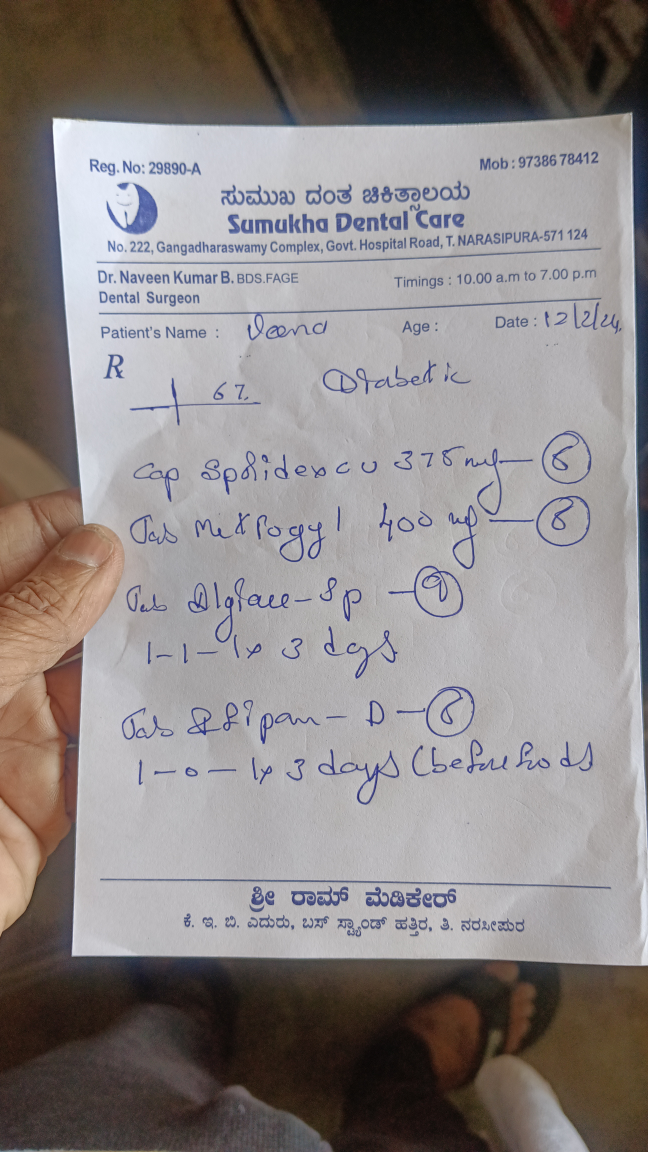 Reg. No: 29890-A
Mob : 97386 78412
ಸುಮುಖ ದಂತ ಚಿಕಿತ್ಸಾಲಯ
Sumukha Dental Care
No. 222, Gangadharaswamy Complex, Govt. Hospital Road, T. NARASIPURA-571 124
Dr. Naveen Kumar B. BDS.FAGE
Timings : 10.00 a.m to 7.00 p.m
Dental Surgeon
Patient's Name : Veena Age : Date : 12/2/24.
R
67 Diabetic
Cap 375 mg — 6
Tab Metrogyl 400 mg — 6
Tab — SP — 9
1-1-1 x 3 days
Tab — D — 6
1-0-1 x 3 days (before
ಶ್ರೀ ರಾಮ್ ಮೆಡಿಕೇರ್
ಕೆ. ಇ. ಬಿ. ಎದುರು, ಬಸ್ ಸ್ಟ್ಯಾಂಡ್ ಹತ್ತಿರ, ತಿ. ನರಸೀಪುರ